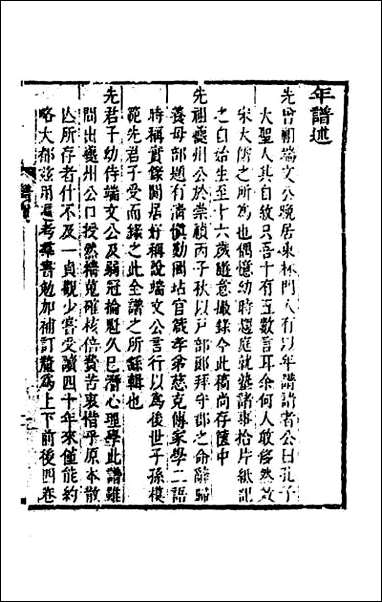 年譜述
先曾祖端文公晚居東林門人有以年譜請者公曰孔子
大聖人其自敘只吾十有五數言耳余何人敢侈然效
宋大儒之所為也偶憶幼時還庭就塾諸事拾片紙記
之自始生至十六歲隨意撮錄今此稿尚存篋中
先祖夔州公於崇禎丙子秋以戶部郎拜守郡之命辭歸
養母部題有清慎勤國站官箴孝弟慈克傳家學二語
時稱實錄閒居好稱說端文公言行以為後世子孫模
範先君子受而錄之此全譜之所繇輯也
先君子幼侍端文公及弱冠掄魁久已潛心理學此譜雖
間出夔州公口授然稽蒐確核倍費苦衷惜乎原本散
亾所存者什不及一貞觀少嘗受讀四十年來僅能約
略大都茲用遍考羣書勉加補訂釐為上下前後四卷